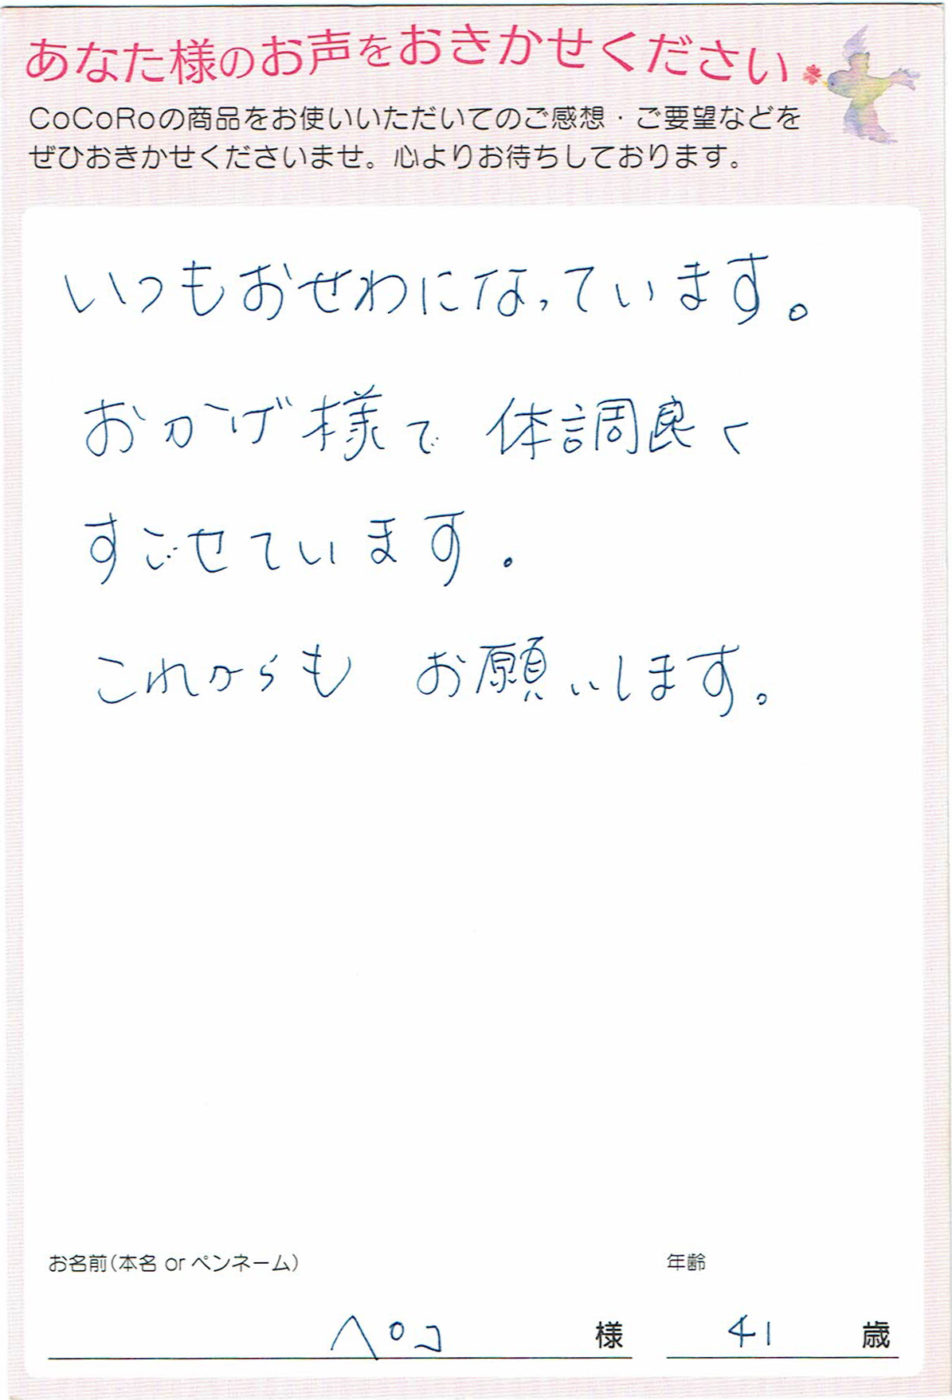 あなた様のお声をおきかせください
CoCoRoの商品をお使いいただいてのご感想・ご要望などを
ぜひおきかせくださいませ。心よりお待ちしております。
いつもおせわになっています。
おかげ様で 体調良く
すごせています.
これからも お願いします。
お名前(本名 or ペンネーム)
年齢
ペコ 様
41 歳